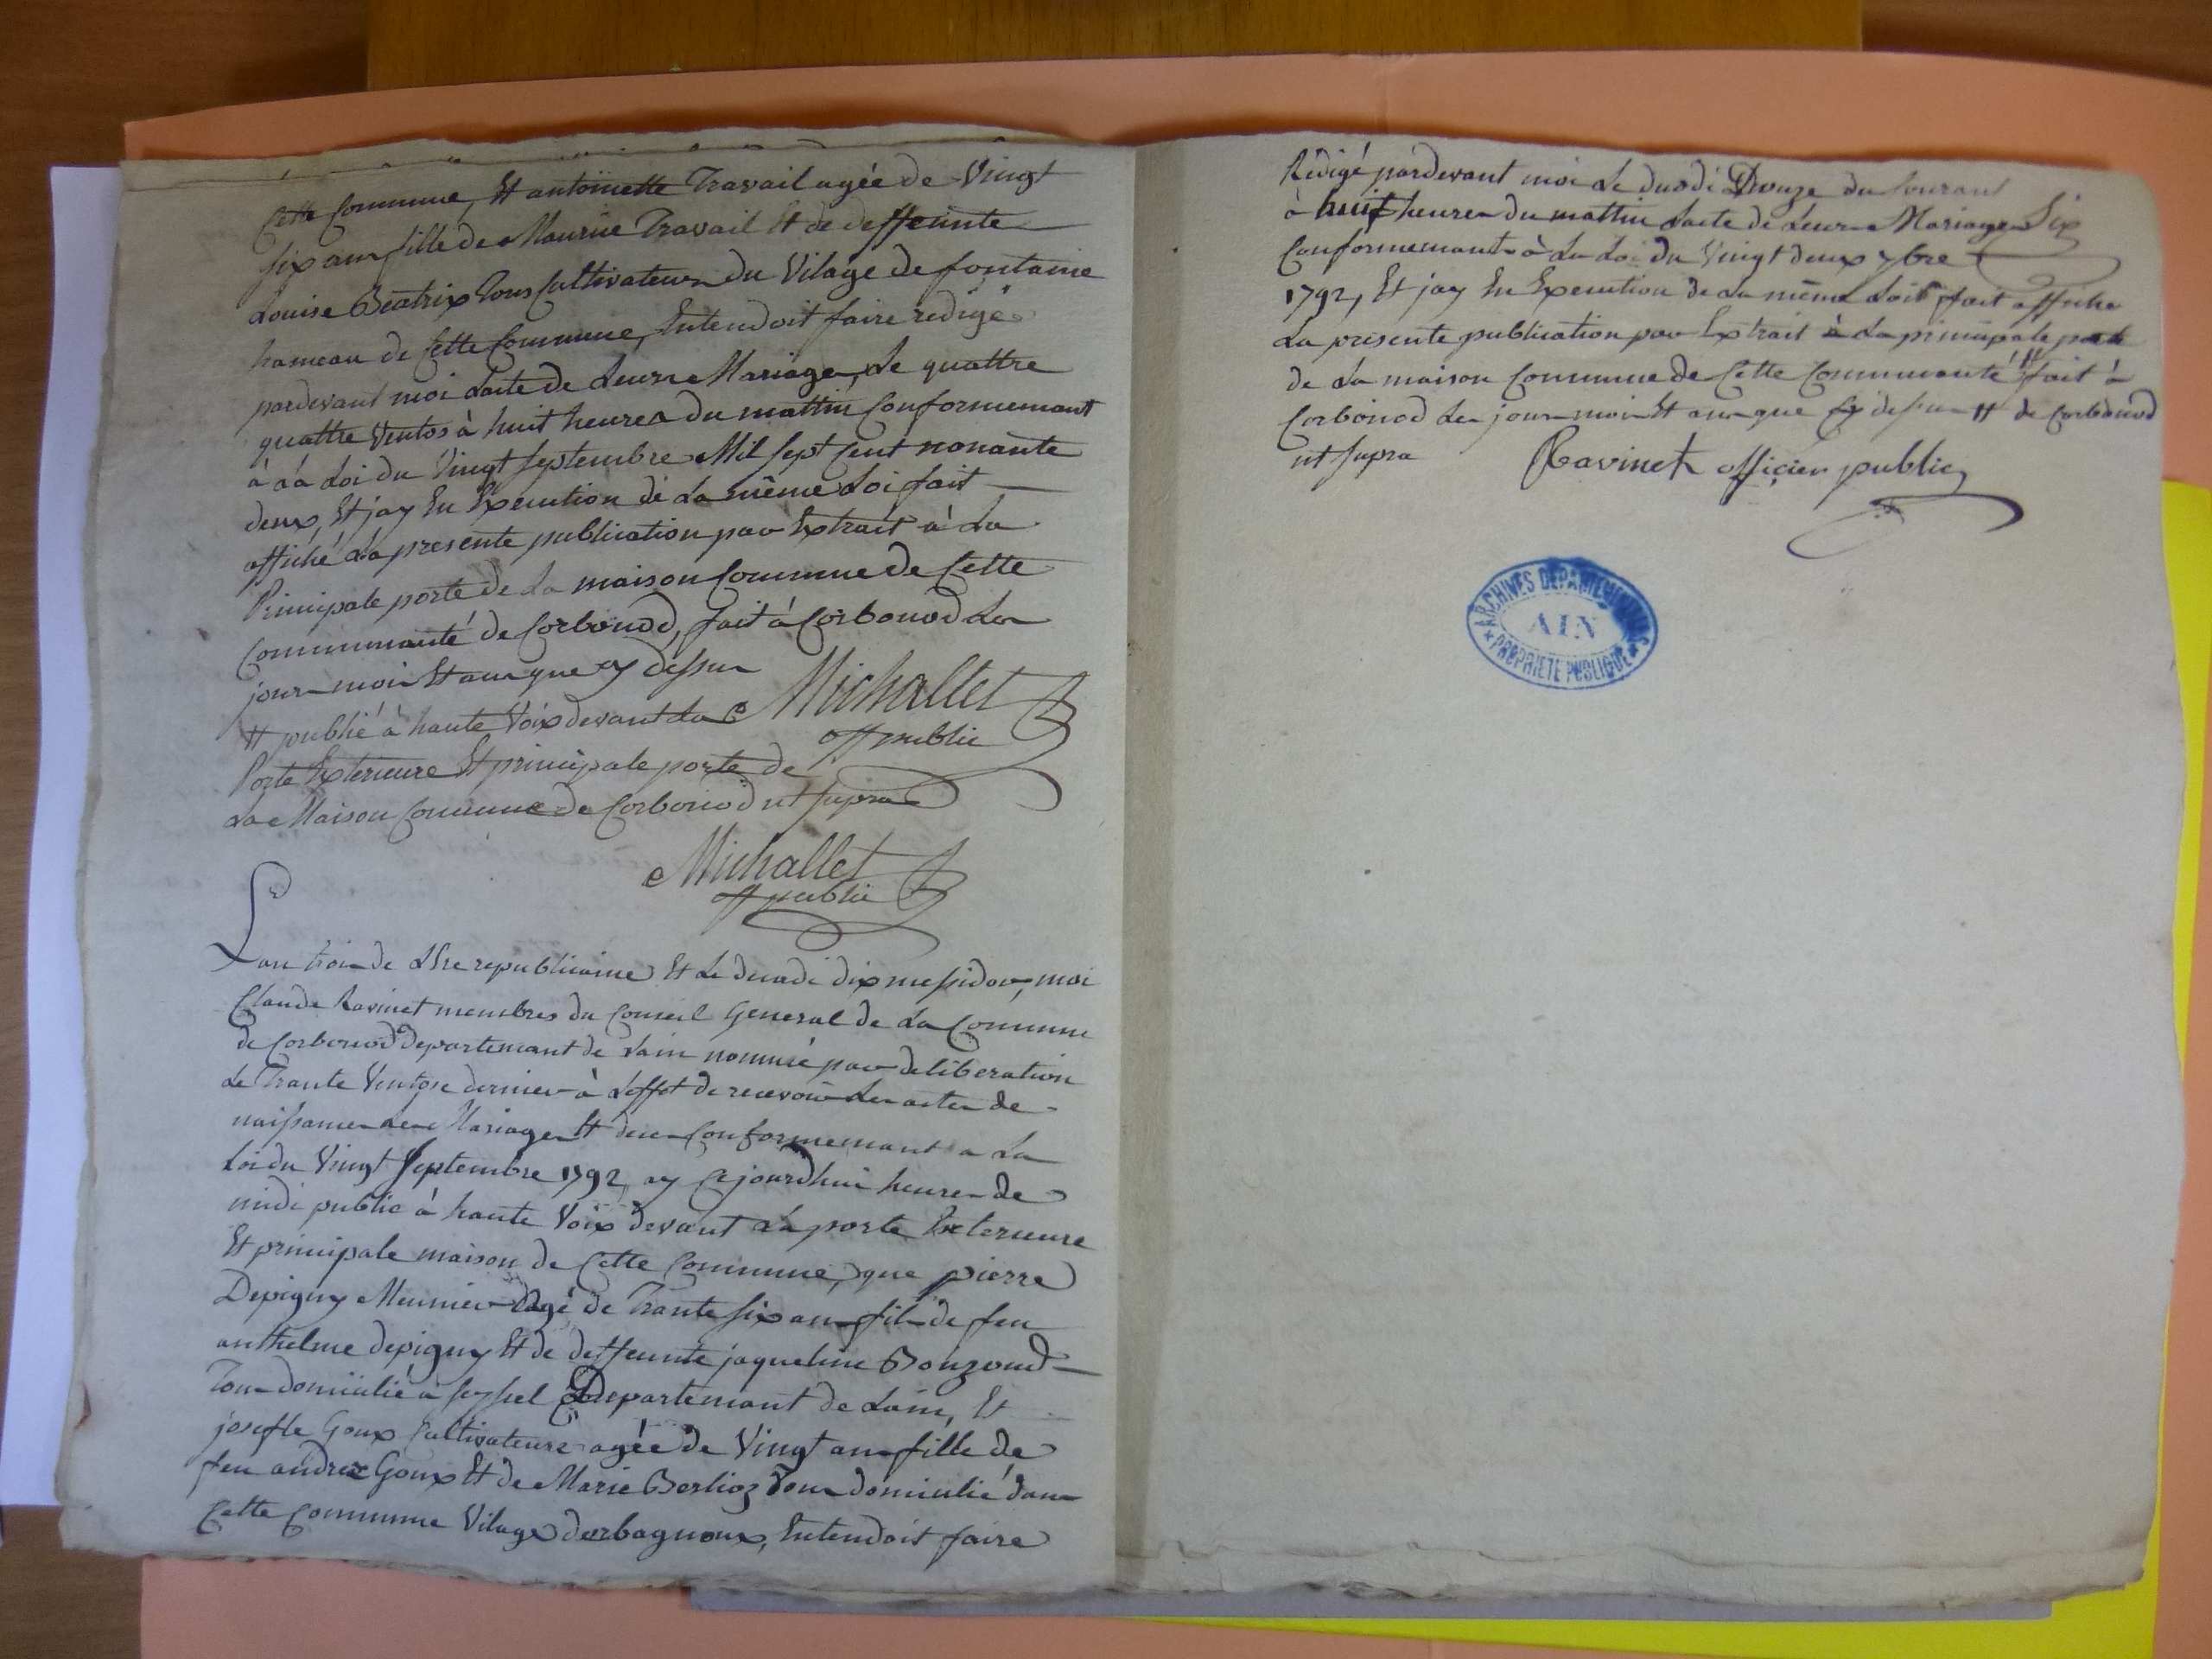 Cette Commune, Et antoinette Travail agée de Vingt
six ans fille de Maurice Travail Et de deffeunte
Louise Béatrix Tous Cultivateurs du Vilage de fontaine
hameau de Cette Commune, Entendoit faire redigé
pardevant moi Lacte de Leurs Mariage, Le quattre
quattre Ventos à huit heures du mattin Conformemant
à La Loi du Vingt septembre Mil sept Cent nonante
deux, Et jay En Execution de La même Loi fait
affiché La presente publication par Extrait à La
Principale porte de La maison Commune de Cette
Communauté de Corbonod, fait à Corbonod Les
jours mois Et ans que cy dessus
# publié à haute Voix devant La
Michallet
off public
Porte Exterieure Et principale porte de
La Maison Commune de Corbonod ut supra
Michallet
off public
Lan trois de Lhre republicaine Et Le decadi dix messidor, moi
Claude Ravinet membres du Conseil General de La Commune
de Corbonod departemant de Lain nommé par deliberation
de Trante Ventose dernier à Leffet de recevoir Les actes de
naissances des Mariages Et deces Conformemant a La
Loi du Vingt Septembre 1792, ay Cejourdhui heures de
midi publié à haute Voix devant La porte Exterieure
Et principale maison de Cette Commune, que pierre
Depigny Meunier agé de Trante six ans fils de feu
anthelme depigny Et de deffeunte jaqueline Bonzond
Tous domicilié à seyssel Departemant de Lain, Et
josefte Goux Cultivateurs agée de Vingt ans fille de
feu andrez Goux Et de Marie Berlioz Tous domicilié dans
Cette Commune Vilage dorbagnoux, Entendoit faire
Rédigé pardevant moi Le duodi Douze du Courant
à huit heures du mattin Lacte de Leurs Mariages Six
Conformemant à La Loi du Vingt deux 7bre
1792, Et jay En Execution de La même Loit fait affiche
La presente publication par Extrait à La principale porte
de La maison Commune de Cette Communauté # fait à
Corbonod Les jours mois Et ans que Cy dessus # de Corbonod
ut supra
Ravinet officier public
ARCHIVES DEPARTEMENTALES
AIN
PROPRIETE PUBLIQUE